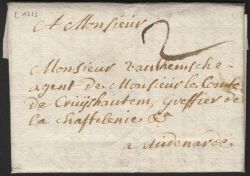 1713
A Monsieur
2
Monsieur vanhemsche
agent de Monsieur le Comte
de Cruÿshautem, Greffier de
la Chastelenie &a
a Audenarde